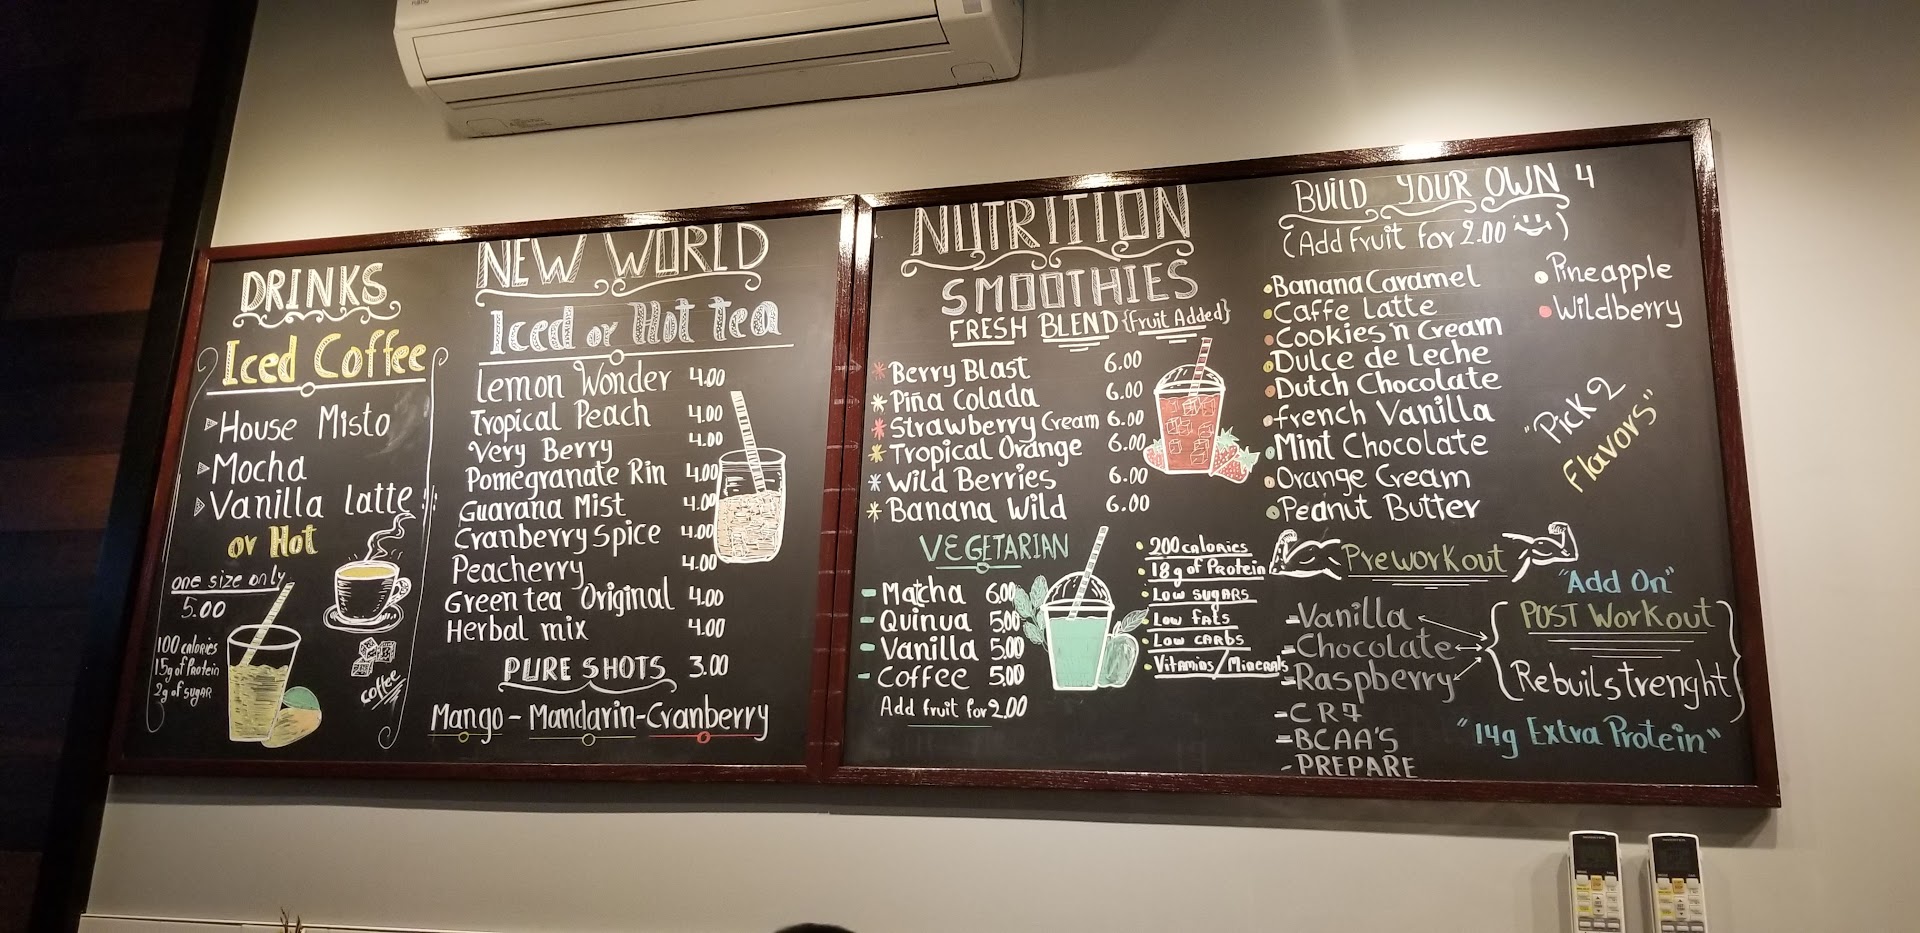 FUJITSU
DRINKS
Iced Coffee
House Misto
Mocha
Vanilla latte
or Hot
one size only
5.00
100 calories
15g of Protein
2g of sugar
coffee
NEW WORLD
Iced or Hot tea
Lemon Wonder 4.00
Tropical Peach 4.00
Very Berry 4.00
Pomegranate Rin 4.00
Guarana Mist 4.00
Cranberry Spice 4.00
Peacherry 4.00
Green tea Original 4.00
Herbal mix 4.00
PURE SHOTS 3.00
Mango - Mandarin - Cranberry
NUTRITION
SMOOTHIES
FRESH BLEND {Fruit Added}
Berry Blast 6.00
Piña Colada 6.00
Strawberry Cream 6.00
Tropical Orange 6.00
Wild Berries 6.00
Banana Wild 6.00
VEGETARIAN
Matcha 6.00
Quinua 5.00
Vanilla 5.00
Coffee 5.00
Add fruit for 2.00
200 calories
18g of Protein
Low sugars
Low fats
Low carbs
Vitamins/Minerals
BUILD YOUR OWN 4
(Add fruit for 2.00)
Banana Caramel
Caffe Latte
Cookies 'n Cream
Dulce de Leche
Dutch Chocolate
French Vanilla
Mint Chocolate
Orange Cream
Peanut Butter
Pineapple
Wildberry
"Pick 2
Flavors"
Preworkout
-Vanilla
-Chocolate
-Raspberry
-CR7
-BCAA'S
-PREPARE
"Add On"
POST Workout
Rebuil strenght
"14g Extra Protein"